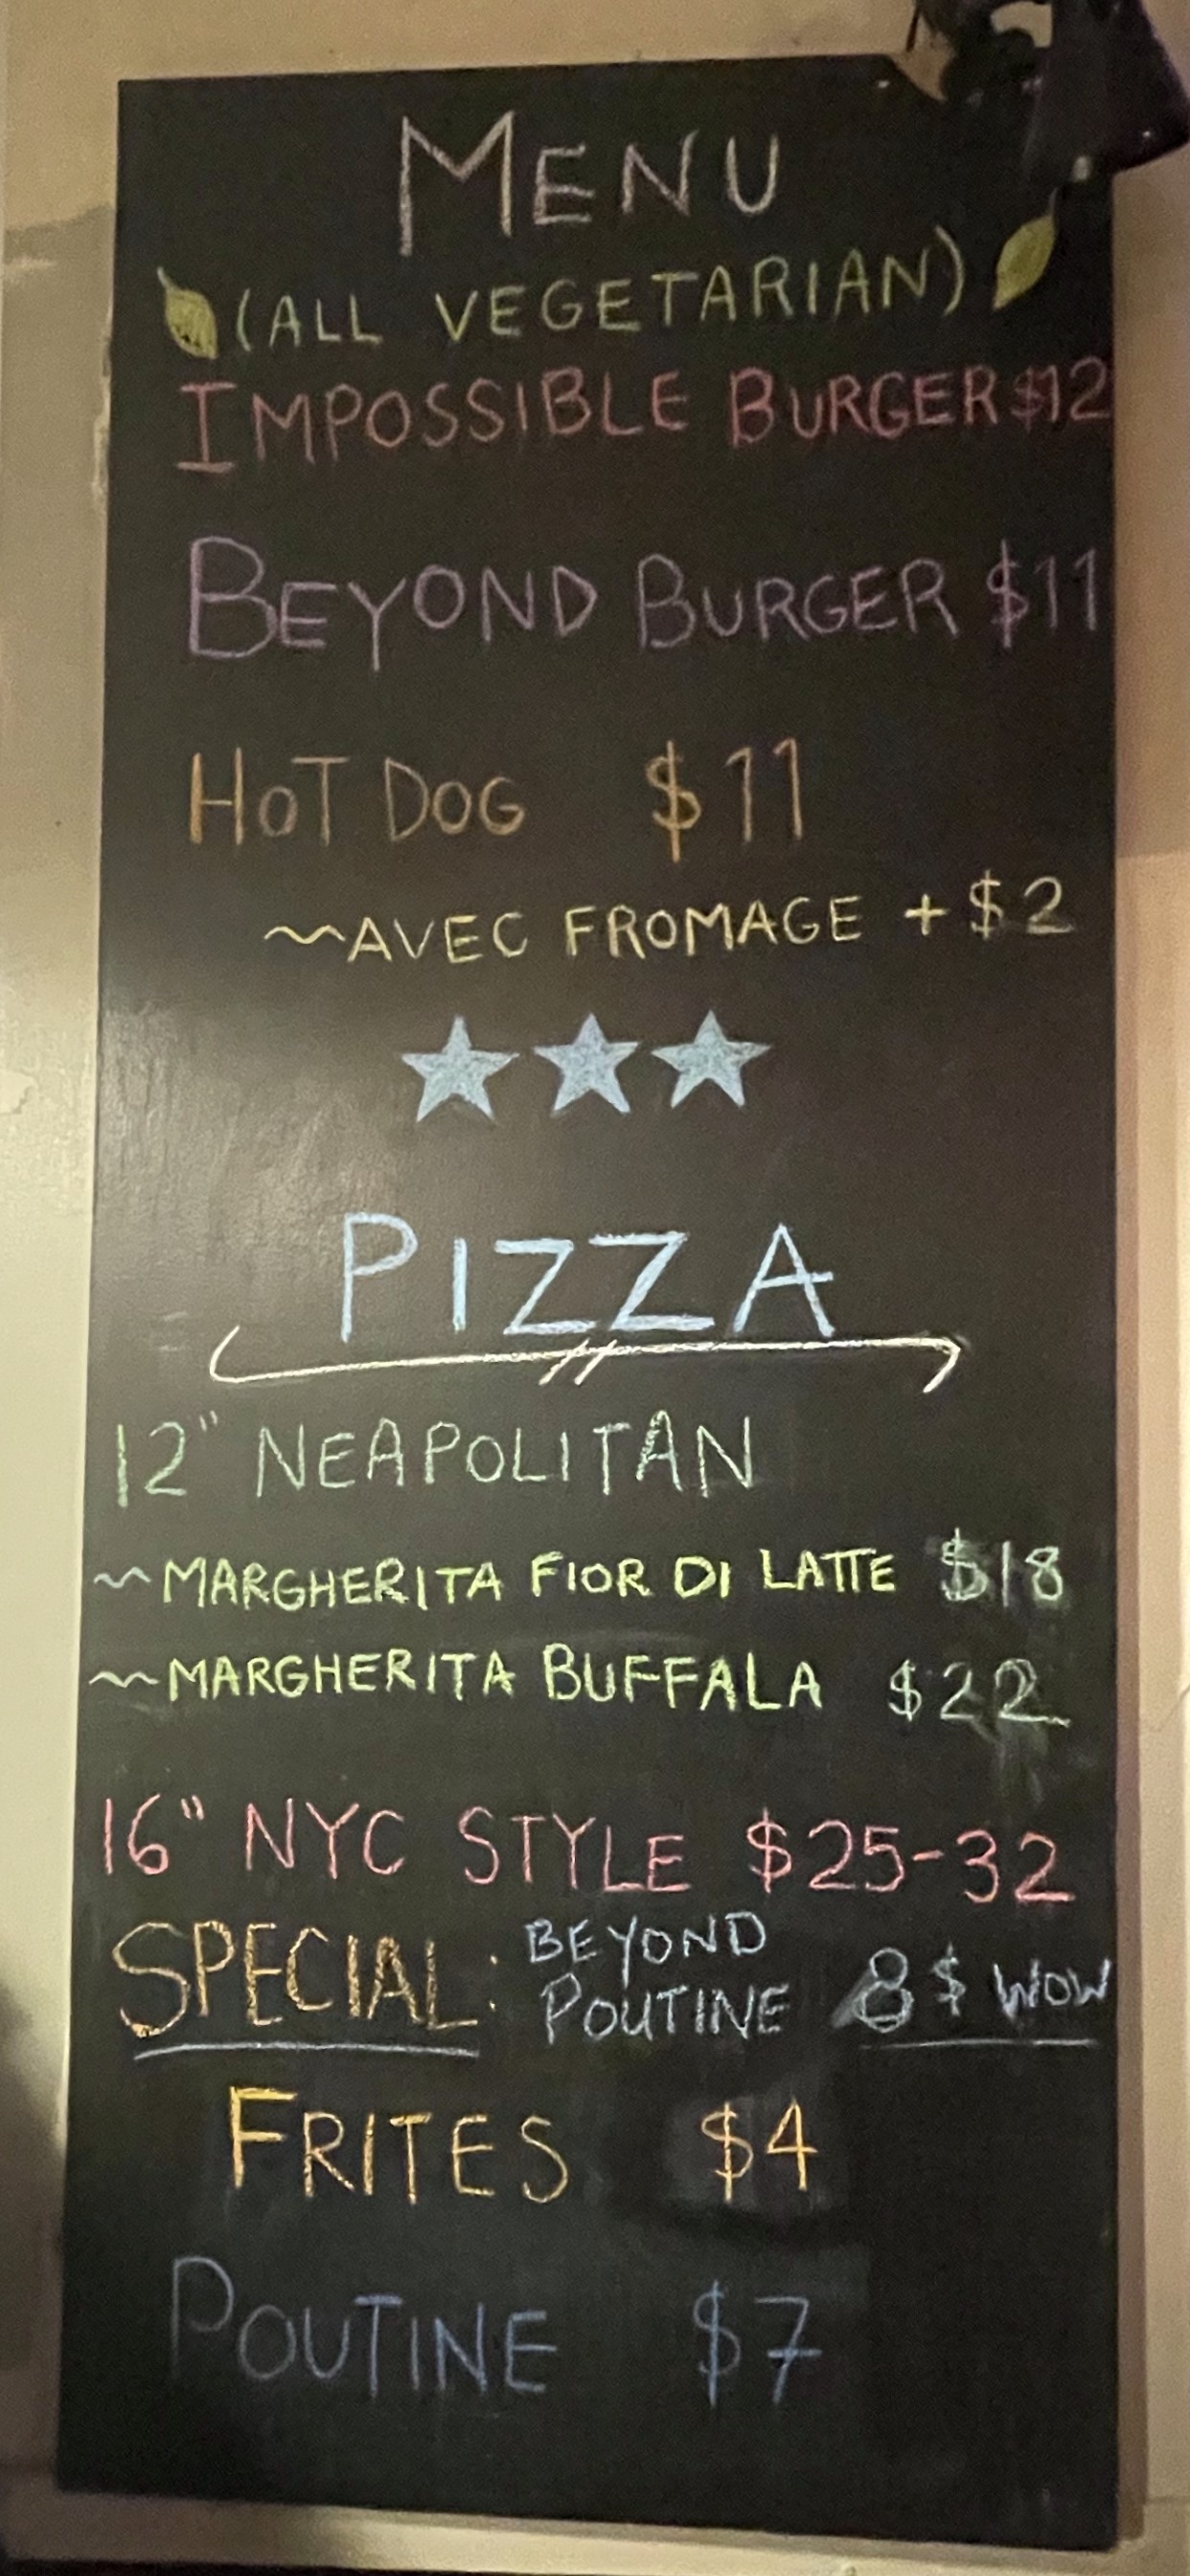 MENU
(ALL VEGETARIAN)
IMPOSSIBLE BURGER $12
BEYOND BURGER $11
HOT DOG $11
~AVEC FROMAGE + $2
PIZZA
12" NEAPOLITAN
~MARGHERITA FIOR DI LATTE $18
~MARGHERITA BUFFALA $22
16" NYC STYLE $25-32
SPECIAL: BEYOND POUTINE 8$ WOW
FRITES $4
POUTINE $7